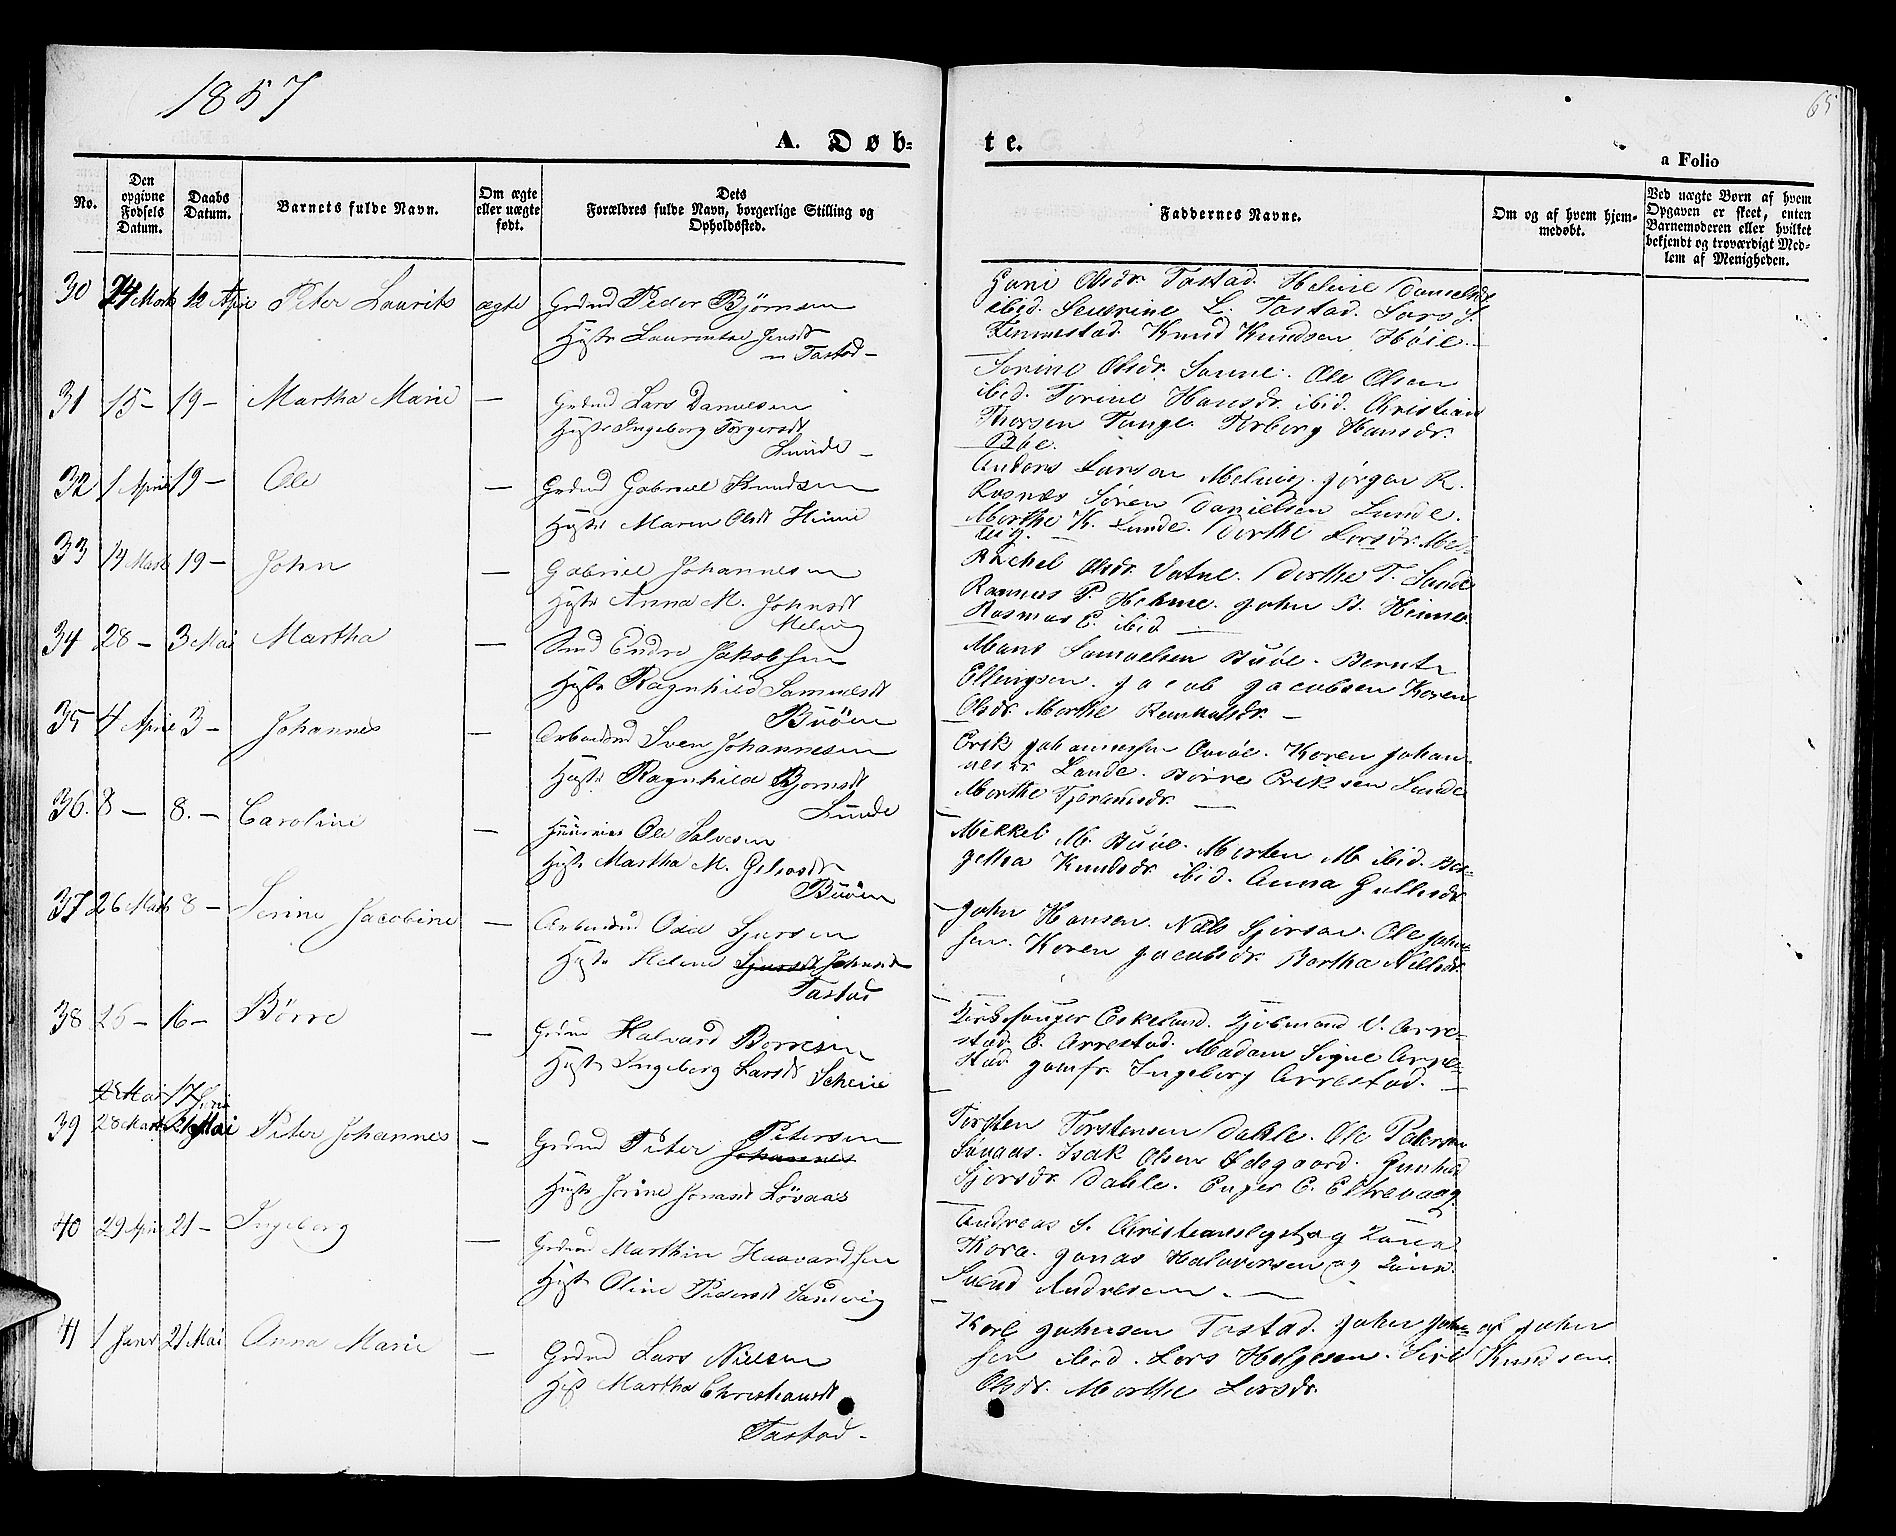 1857
65
A. Døb=
te.
a Folio
No.
Den opgivne Fødsels Datum.
Daabs Datum.
Barnets fulde Navn.
Om ægte eller uægte født.
Dets Forældres fulde Navn, borgerlige Stilling og Opholdssted.
Faddernes Navne.
Om og af hvem hjemmedøbt.
Ved uægte Børn af hvem Opgaven er skeet, enten Barnemoderen eller hvilket bekjendt og troværdigt Medlem af Menigheden.
30 24 Marts 12 April Peter Laurits ægte Grdmd Peder Bjørnsen
Hustr Laurentse Jensdt
Tastad
Olsdr. Tastad. Helene Danielsdr
ibid. Severine L. Tastad. Lars S.
Knud Knudsen Høie.
31 15 – 19 – Martha Marie – Grdmd Lars Danielsen
Hustr Ingeborg Torgersdt
Lunde –
Olsdr. Sonne. Ole Olsen
ibid. Torine Hansdr. ibid. Christian
Thorsen Tunge. Torborg Hansdr.
Bøe.
32 1 April 19 – Ole – Grdmd Gabriel Knudsen
Hustr Maren Olsdt
Anders Larsen Melvig. Jørgen R.
Rosnæs Søren Danielsen Lunde.
Marthe K. Lunde. Dorthe Larsdr. Mel-
vig.
33 14 Marts 19 – John – Gabriel Johannesen
Hustr Anna M. Johnsdt
Melvig
Rachel Olsdr. Vatne. Dorthe T. Lunde
Rasmus P. John B.
Rasmus E. ibid –
34 28 – 3 Mai Martha – Endre Jakobsen
Hustr Ragnhild Samuelsdt
Buøen
Mans Samuelsen Buøe. Bernt
Ellingsen. Jacob Jacobsen Karen
Olsdr. Marthe –
35 4 April 3 – Johannes – Arbeidsmd Sven Johannesen
Hustr Ragnhild Bjørnsdt
Lunde
Erik Johannessen Karen Johan-
nesdr. Lunde. Børre Eriksen Lunde
Marthe –
36. 8 – 8. – Caroline – Ole Salvesen
Hustr Martha M.
Buøen
Mikkel M. Buøe. Morten M. ibid. Ber-
getha Knudsdr. ibid. Anna
37 26 Marts 8 – Serine Jacobine – Arbeidsmd Odd Sjursen
Hustr Helene Sjursdt Johnsdt
Tastad
John Hansen. Niels Ole John-
sen. Karen Jacobsdr. Bertha Nielsdr.
38 25 – 16 – Børre – Grdmd Halvard Børresen
Hustr Ingeborg Larsdt
Kirkesanger Eskeland. V. Arre-
stad. E. Arrestad. Madam Signe Arre-
stad Jomfr. Ingeborg Arrestad. –
4 Mai 17 Juni
39 28 Marts 21 Mai Peter Johannes – Grdmd Peter Johannes Petersen
Hustr Løvaas
Torsten Torstensen Dahle. Ole Petersen
Løvaas. Isak Olsen Ødegaard. Gunhild
Dahle. Enger E. Eltrevaag
40 29 April 21 – Ingeborg – Grdmd Marthin Haavardsen
Hustr Oline Pedersdt Sandvig
Andreas S. og
Jonas Halvorsen og
Svend Andresen. –
41 1 Janr 21 Mai Anna Marie – Grdmd Lars Nielsen
Hust Martha Christiansdt
Tastad –
Karl Johnsen Tastad. John John-
sen ibid. Lars Helgesen. Siri
Olsdr. Marthe Larsdr.
af John
Knudsen.